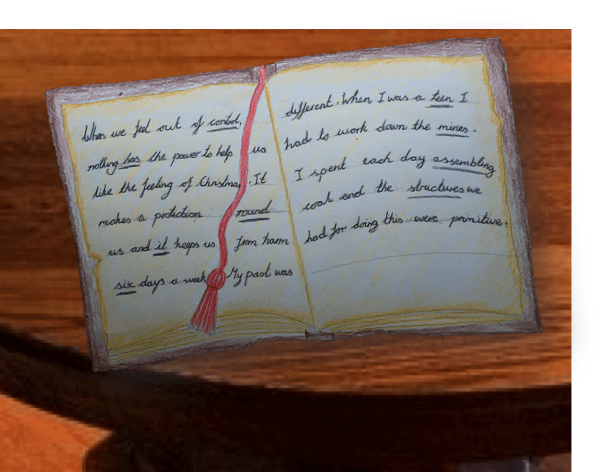 When we feel out of control,
nothing has the power to help us
like the feeling of Christmas. It
makes a protection round
us and it keeps us from harm
six days a week. My past was
different. When I was a teen I
had to work down the mines.
I spent each day assembling
coal and the structures we
had for doing this were primitive.